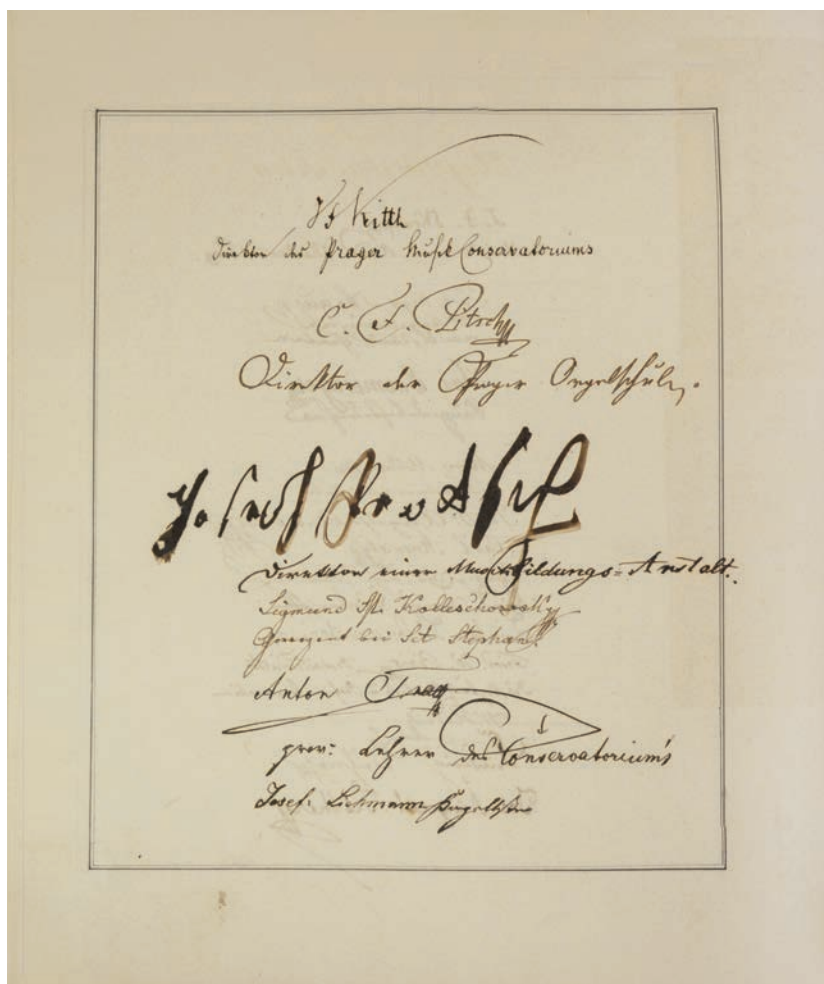 J F Kittl
Direktor des Prager Musik Conservatoriums
C. F. Pitsch
Direktor der Prager Orgelschule.
Joseph Proksch
Direktor einer Musikbildungs-Anstalt.
Sigmund Kolleschowsky
bei Sct Stephan
Anton Träg
prov: Lehrer des Conservatorium's
Josef